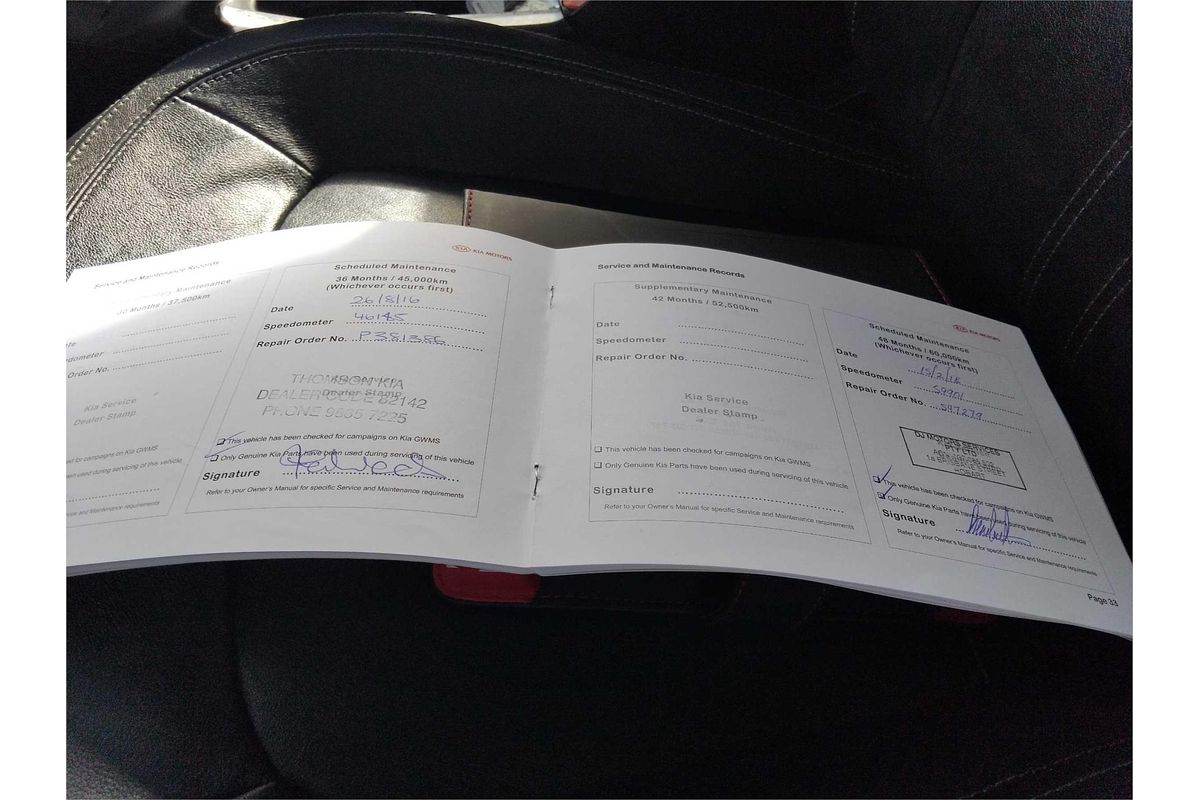 Service and Maintenance Records
Supplementary Maintenance
30 Months / 37,500km
Date
Speedometer
Order No.
Kia Service
Dealer Stamp
ed for campaigns on Kia GWMS
have been used during servicing of this vehicle
Service and Maintenance requirements
KIA KIA MOTORS
Scheduled Maintenance
36 Months / 45,000km
(Whichever occurs first)
Date 26/8/16
Speedometer 46185
Repair Order No. P381386
Kia Service
Dealer Stamp
THOMSON KIA
DEALER CODE 82142
PHONE 9585 7225
This vehicle has been checked for campaigns on Kia GWMS
Only Genuine Kia Parts have been used during servicing of this vehicle
Signature
Refer to your Owner's Manual for specific Service and Maintenance requirements
Service and Maintenance Records
Supplementary Maintenance
42 Months / 52,500km
Date
Speedometer
Repair Order No.
Kia Service
Dealer Stamp
This vehicle has been checked for campaigns on Kia GWMS
Only Genuine Kia Parts have been used during servicing of this vehicle
Signature
Refer to your Owner's Manual for specific Service and Maintenance requirements
KIA KIA MOTORS
Scheduled Maintenance
48 Months / 60,000km
(Whichever occurs first)
Date 15/2/18
Speedometer 59901
Repair Order No. S97279
DJ MOTORS SERVICES
PTY LTD
HOBART
This vehicle has been checked for campaigns on Kia GWMS
Only Genuine Kia Parts have been used during servicing of this vehicle
Signature
Refer to your Owner's Manual for specific Service and Maintenance requirements
Page 33